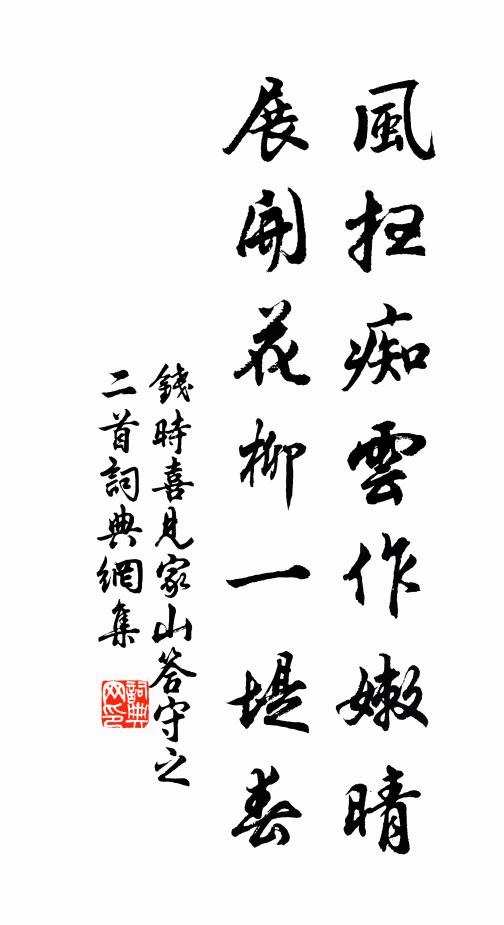 風扫痴雲作嫩晴
展開花柳一堤春
錢時喜見家山答守之
二首詞典網集
詞典網印